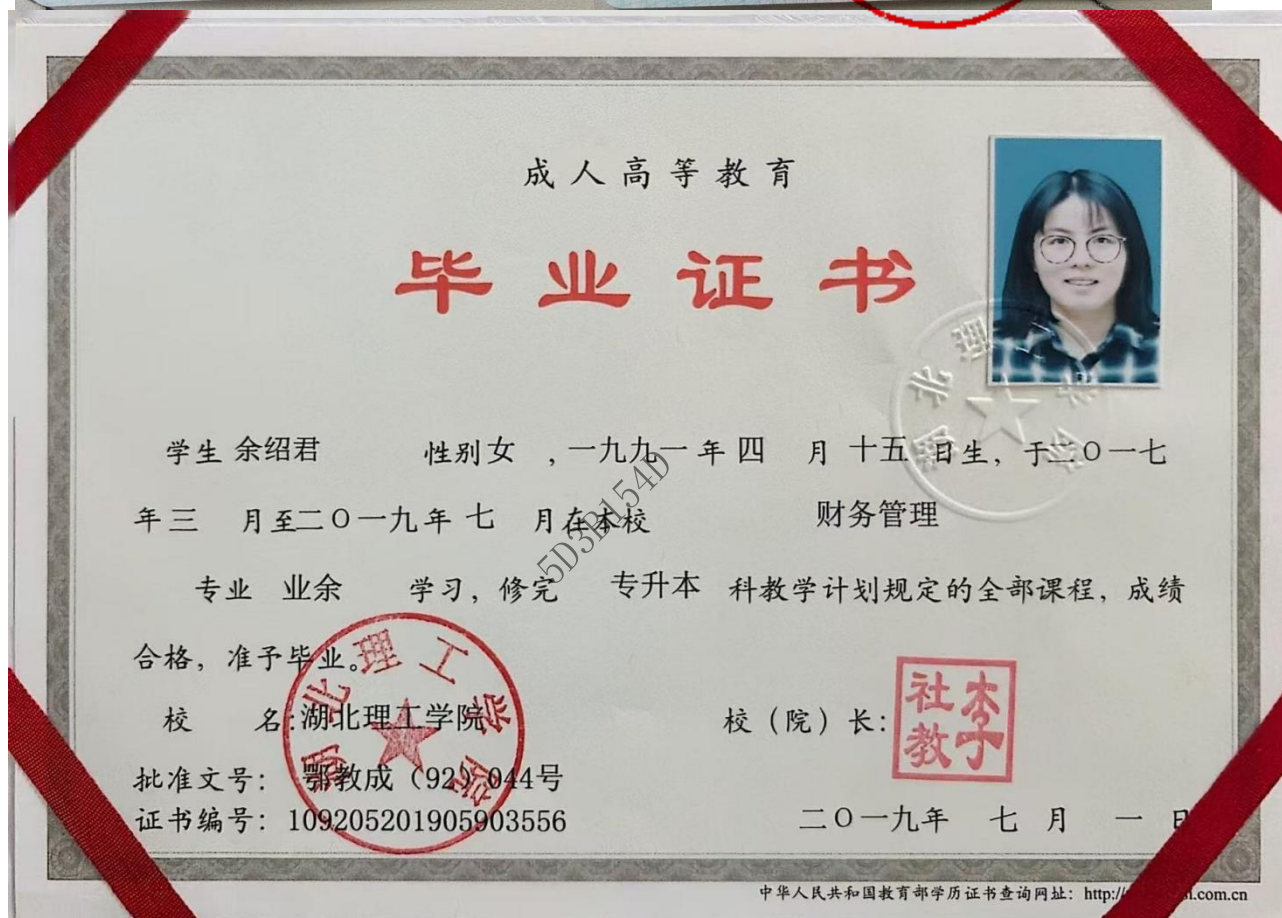 成人高等教育
毕业证书
学生 余绍君 性别 女 ，一九九一年 四 月 十五 日生，于二〇一七
年 三 月至二〇一九年 七 月在本校 财务管理
专业 业余 学习，修完 专升本 科教学计划规定的全部课程，成绩
合格，准予毕业。
校 名：湖北理工学院
校（院）长：
李社教
批准文号： 鄂教成（92）044号
证书编号： 109205201905903556
二〇一九年 七 月 一 日
中华人民共和国教育部学历证书查询网址：http:// .com.cn
湖北理工学院
湖北理工学院
5D3B154D